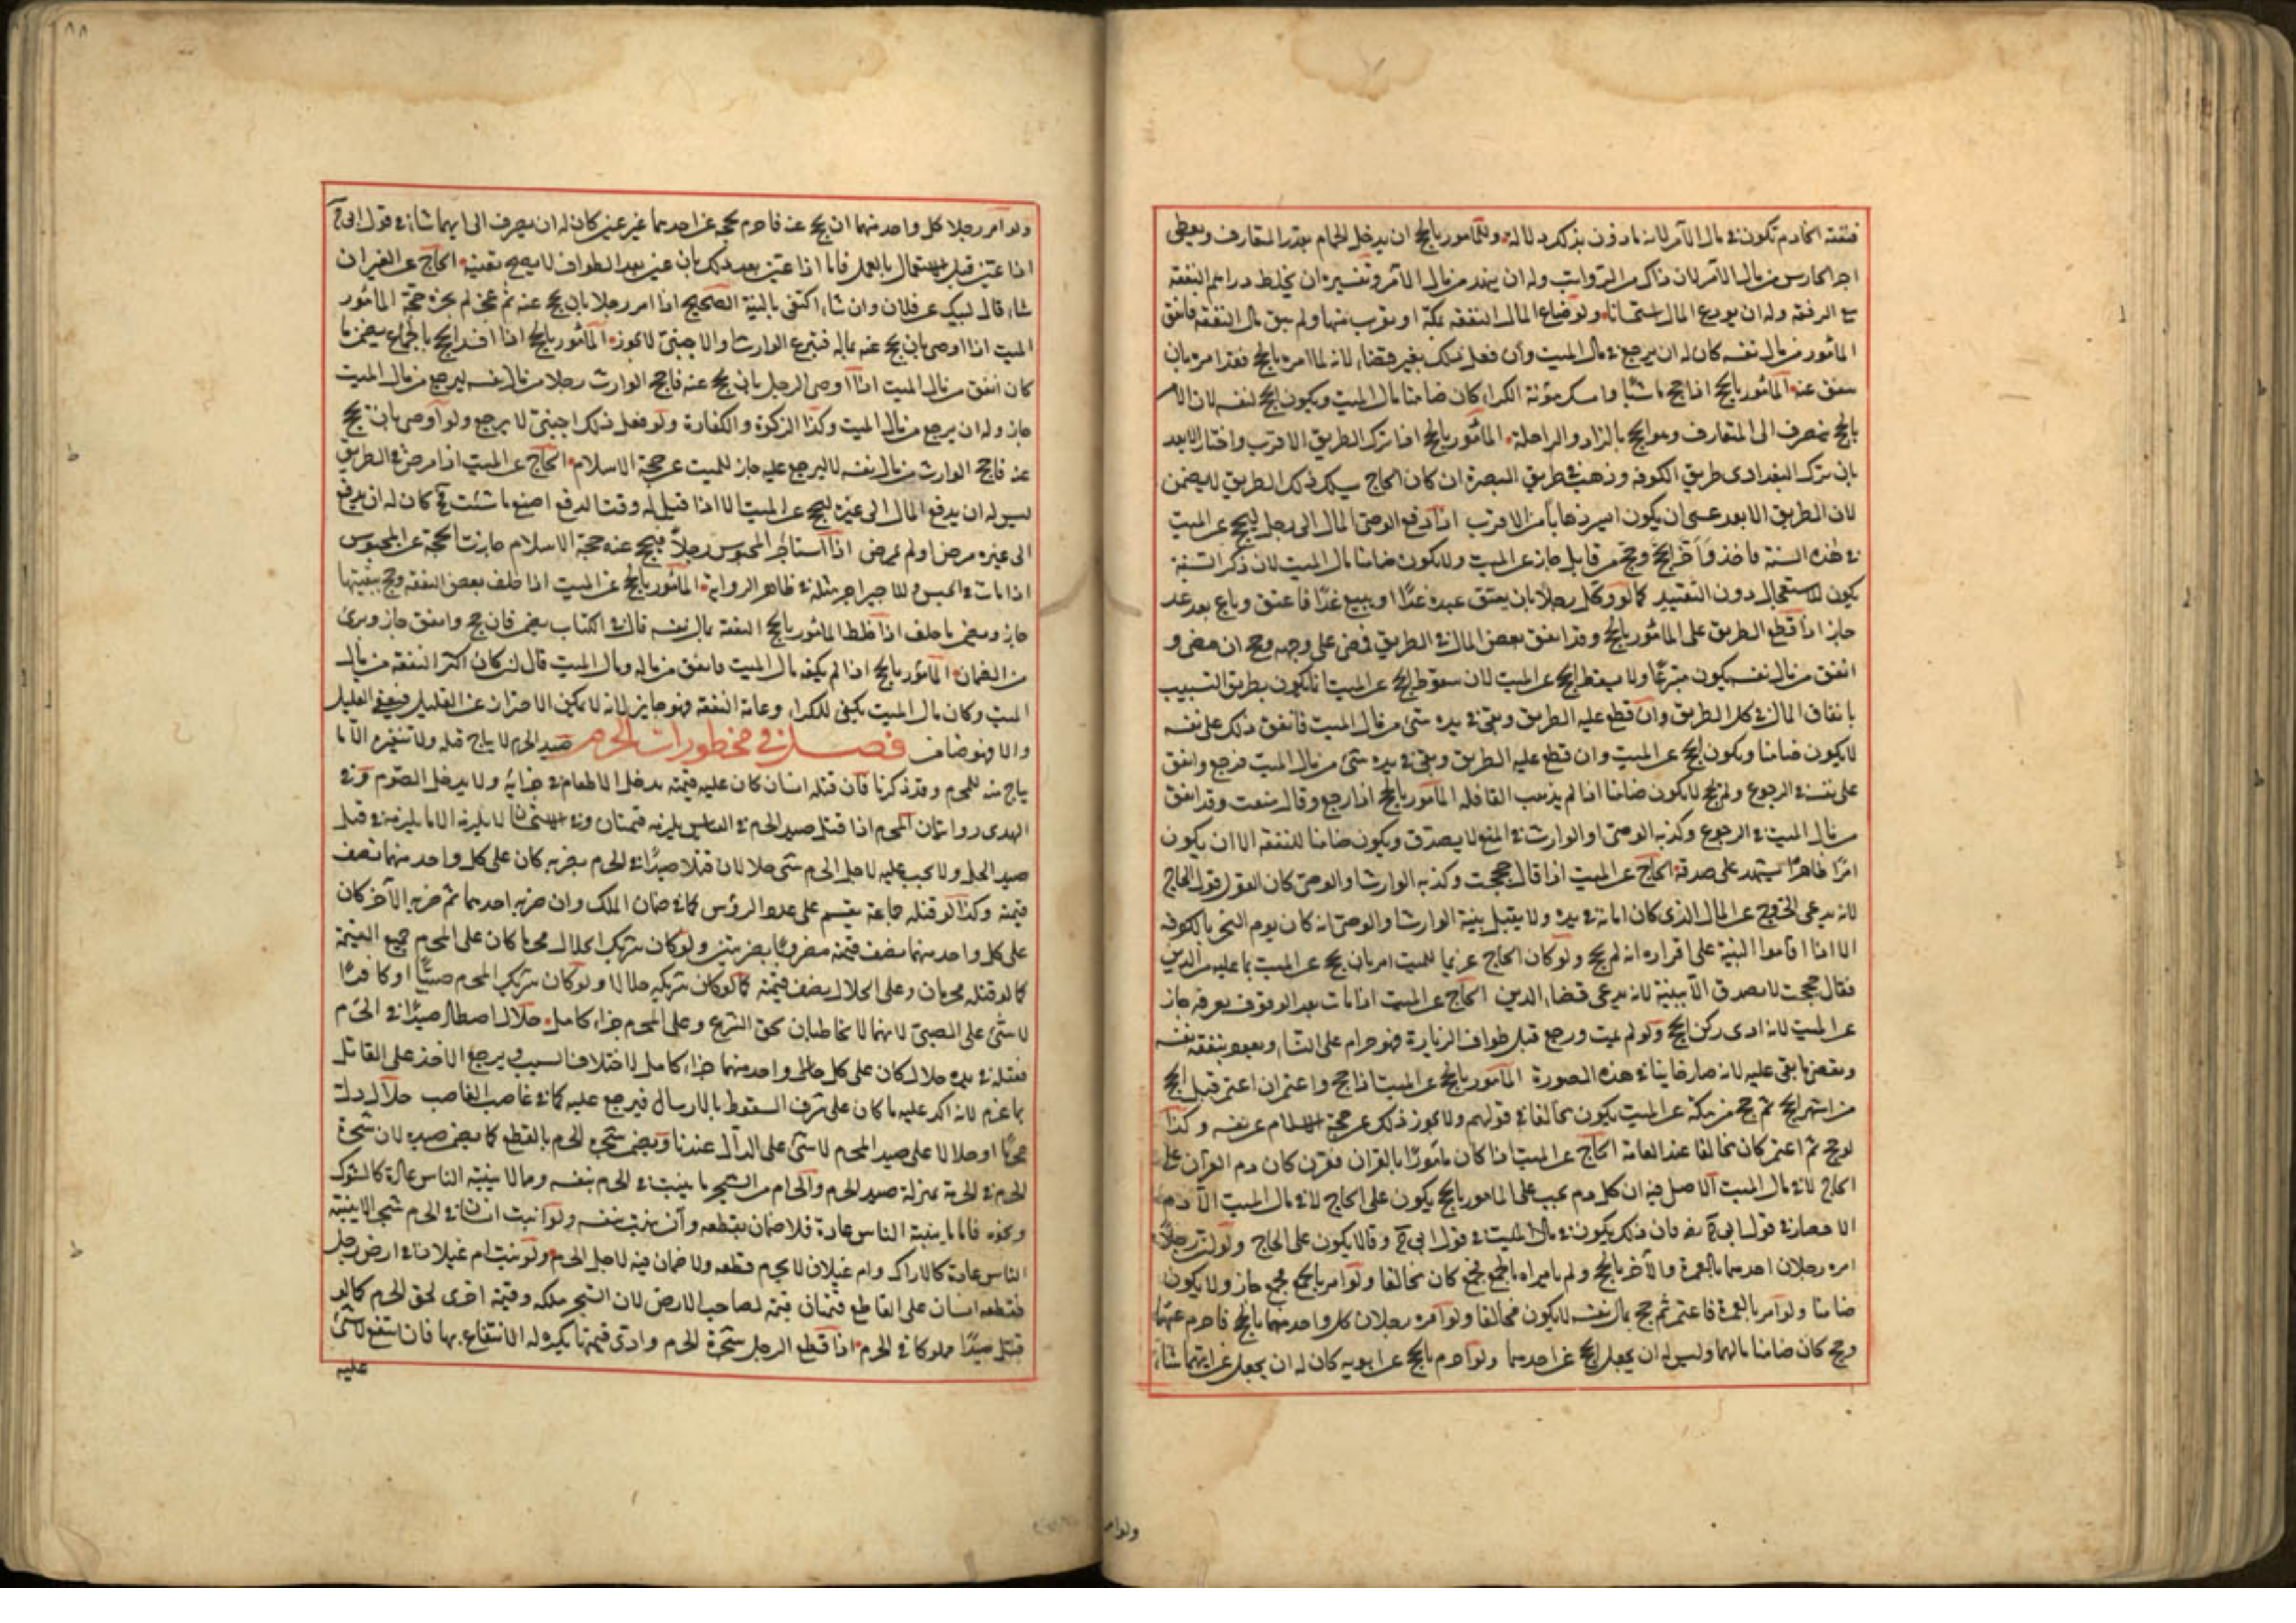 فنفقة الخادم تكون في مال الآمر لانه مأذون بذلك دلالة وللمأمور بالحج ان يدخل الحمام بقدر المتعارف ويعطى
اجر الحارس من مال الآمر لان ذلك من الرواتب وله ان ينهد من مال الآمر وتفسيره ان يخلط دراهم النفقة
مع الرفقة وله ان يودع المال استحسانا ولو ضاع المال النفقة بمكة او بقرب منها ولم يبق مال النفقة فانفق
المأمور من مال نفسه كان له ان يرجع في مال الميت وان فعل ذلك بغير قضاء لانه لما امره بالحج فقد امره بان
ينفق عنه المأمور بالحج اذا حج ماشيا وامسك مؤنة الكراء كان ضامنا مال الميت ويكون الحج لنفسه لان الامر
بالحج ينصرف الى المتعارف وهو الحج بالزاد والراحلة المأمور بالحج اذا ترك الطريق الاقرب واختار الابعد
بان ترك البغدادى طريق الكوفة وذهب في طريق البصرة ان كان الحاج يسلك ذلك الطريق لا يضمن
لان الطريق الابعد عسى ان يكون ايسر ذهابا من الاقرب اذا دفع الوصى المال الى رجل ليحج عن الميت
في هذه السنة فاخذ واخر الحج وحج من قابل جاز عن الميت ولا يكون ضامنا مال الميت لان ذكر السنة
يكون للاستعجال دون التقييد كما لو وكل رجلا بان يعتق عبده غدا او يبيع غدا فاعتق وباع بعد غد
جاز اذا قطع الطريق على المأمور بالحج وقد انفق بعض المال في الطريق فمضى على وجهه وحج ان مضى و
انفق من مال نفسه يكون متبرعا ولا يسقط الحج عن الميت لان سقوط الحج عن الميت انما يكون بطريق التسبيب
بانفاق المال في كل الطريق وان قطع عليه الطريق وبقى في يده شئ من مال الميت فانفق ذلك على نفسه
لا يكون ضامنا ويكون الحج عن الميت وان قطع عليه الطريق وبقى في يده شئ من مال الميت فرجع وانفق
على نفسه في الرجوع ولم يحج لا يكون ضامنا اذا لم يذهب القافلة المأمور بالحج اذا رجع وقال منعت وقد انفق
من مال الميت في الرجوع وكذبه الوصى او الوارث في المنع لا يصدق ويكون ضامنا للنفقة الا ان يكون
امرا ظاهرا يشهد على صدقه الحاج عن الميت اذا قال حججت وكذبه الوارث او الوصى كان القول قول الحاج
لانه يدعى الخروج عن المال الذى كان امانة في يده ولا يقبل بينة الوارث او الوصى انه كان يوم النحر بالكوفة
الا اذا اقاموا البينة على اقراره انه لم يحج ولو كان الحاج غريما للميت امر بان يحج عن الميت بما عليه من الدين
فقال حججت لا يصدق الا ببينة لانه يدعى قضاء الدين الحاج عن الميت اذا مات بعد الوقوف بعرفة جاز
عن الميت لانه ادى ركن الحج ولو لم يمت ورجع قبل طواف الزيارة فهو حرام على النساء ويعود بنفقة نفسه
ويقضى ما بقى عليه لانه صار خاينا في هذه الصورة المأمور بالحج عن الميت اذا حج واعتمر ان اعتمر قبل الحج
من اشهر الحج ثم حج من مكة عن الميت يكون مخالفا في قولهم ولا يجوز ذلك عن حجة الاسلام عن نفسه وكذا
لو حج ثم اعتمر كان مخالفا عند العامة الحاج عن الميت اذا كان مأمورا بالقران فقرن كان دم القران على
الحاج لا في مال الميت الاصل فيه ان كل دم يجب على المأمور بالحج يكون على الحاج لا في مال الميت الا دم
الاحصار في قول ابى ح فان ذلك يكون في مال الميت في قول ابى ح وقالا يكون على الحاج ولو ان رجلا
امره رجلان احدهما بالعمرة والآخر بالحج ولم يأمراه بالجمع فجمع كان مخالفا ولو امر بالجمع فجمع جاز ولا يكون
ضامنا ولو امر بالعمرة فاعتمر ثم حج بمال نفسه لا يكون مخالفا ولو امره رجلان كل واحد منهما بالحج فاحرم عنهما
وحج كان ضامنا مالهما وليس له ان يجعل الحج عن احدهما ولو احرم بالحج عن ابويه كان له ان يجعل عن ايهما شاء
ولو امر
ولو امر رجلا كل واحد منهما ان يحج عنه فاحرم بحجة عن احدهما غير عين كان له ان يصرف الى ايهما شاء في قول ابى ح
اذا عين قبل الاشتغال بالعمل فاما اذا عين بعد ذلك بان عين بعد الطواف لا يصح تعيينه الحاج عن الغير ان
شاء قال لبيك عن فلان وان شاء اكتفى بالنية الصحيح اذا امر رجلا بان يحج عنه ثم عجز لم يجزه حجة المأمور
الميت اذا اوصى بان يحج عنه بماله فتبرع الوارث او الاجنبى لا يجوز المأمور بالحج اذا افسد الحج بالجماع يضمن ما
كان انفق من مال الميت اذا اوصى الرجل بان يحج عنه فاحج الوارث رجلا من مال نفسه ليرجع من مال الميت
جاز وله ان يرجع من مال الميت وكذا الزكوة والكفارة ولو فعل ذلك اجنبى لا يرجع ولو اوصى بان يحج
عنه فاحج الوارث من مال نفسه لا ليرجع عليه جاز للميت عن حجة الاسلام الحاج عن الميت اذا مرض في الطريق
ليس له ان يدفع المال الى غيره ليحج عن الميت الا اذا قيل له وقت الدفع اصنع ما شئت فح كان له ان يدفع
الى غيره مرض او لم يمرض اذا استأجر المحبوس رجلا ليحج عنه حجة الاسلام جازت الحجة عن المحبوس
اذا مات في الحبس وللاجير اجر مثله في ظاهر الرواية المأمور بالحج عن الميت اذا خلف بعض النفقة وحج ببقيتها
جاز ويضمن ما خلف اذا خلط المأمور بالحج النفقة بمال نفسه قال في الكتاب يضمن فان حج وانفق جاز وبرئ
من الضمان المأمور بالحج اذا لم يكفه مال الميت فانفق من ماله ومال الميت قال ان كان اكثر النفقة من مال
الميت وكان مال الميت يكفى للكراء وعامة النفقة فهو جايز لانه لا يمكن الاحتراز عن القليل فيعفى القليل
والا فهو ضامن فصل في محظورات الحرم صيد الحرم لا يباح قتله ولا تنفيره الا ما
يباح منه للمحرم وقد ذكرنا فان قتله انسان كان عليه قيمته يدخل الاطعام في جزائه ولا يدخل الصوم وفي
الهدى روايتان المحرم اذا قتل صيد الحرم في القياس يلزمه قيمتان وفي الاستحسان لا يلزمه الا ما يلزمه في قتل
صيد الحل ولا يجب عليه لاجل الحرم شئ حلالان قتلا صيدا في الحرم بضربة كان على كل واحد منهما نصف
قيمته وكذا لو قتله جماعة يقسم على عدد الرؤس كما في ضمان الملك وان ضربه احدهما ثم ضربه الآخر كان
على كل واحد منهما نصف قيمته مضروبا بضربتين ولو كان شريك الحلال محرما كان على المحرم جميع القيمة
كما لو قتله محرمان وعلى الحلال نصف قيمته كما لو كان شريكه حلالا ولو كان شريك المحرم صبيا او كافرا
لا شئ على الصبى لانهما لا يخاطبان بحق الشرع وعلى المحرم جزاء كامل حلال اصطاد صيدا في الحرم
فقتله في يده حلال كان على كل واحد منهما جزاء كامل لاختلاف السبب ويرجع الآخذ على القاتل
بما غرم لانه اكد عليه ما كان على شرف السقوط بالارسال فيرجع عليه كما في غاصب الغاصب حلال دل
محرما او حلالا على صيد المحرم لا شئ على الدال عندنا ويضمن شجرة الحرم بالقطع كما يضمن صيده لان شجرة
الحرم في الحرمة بمنزلة صيد الحرم والحرام من الشجر ما ينبت في الحرم بنفسه ومما لا ينبته الناس عادة كالشوك
ونحوه فاما ما ينبته الناس عادة فلا ضمان بقطعه وان نبت بنفسه ولو انبت انسان في الحرم شجرا لا ينبته
الناس عادة كالاراك وام غيلان لا يحرم قطعه ولا ضمان فيه لاجل الحرم ولو نبت ام غيلان في ارض رجل
فقطعه انسان على القاطع قيمتان قيمة لصاحب الارض لان الشجر ملكه وقيمة اخرى لحق الحرم كما لو
قتل صيدا مملوكا في الحرم اذا قطع الرجل شجرة الحرم وادى قيمتها يكره له الانتفاع بها فان انتفع لا شئ
عليه